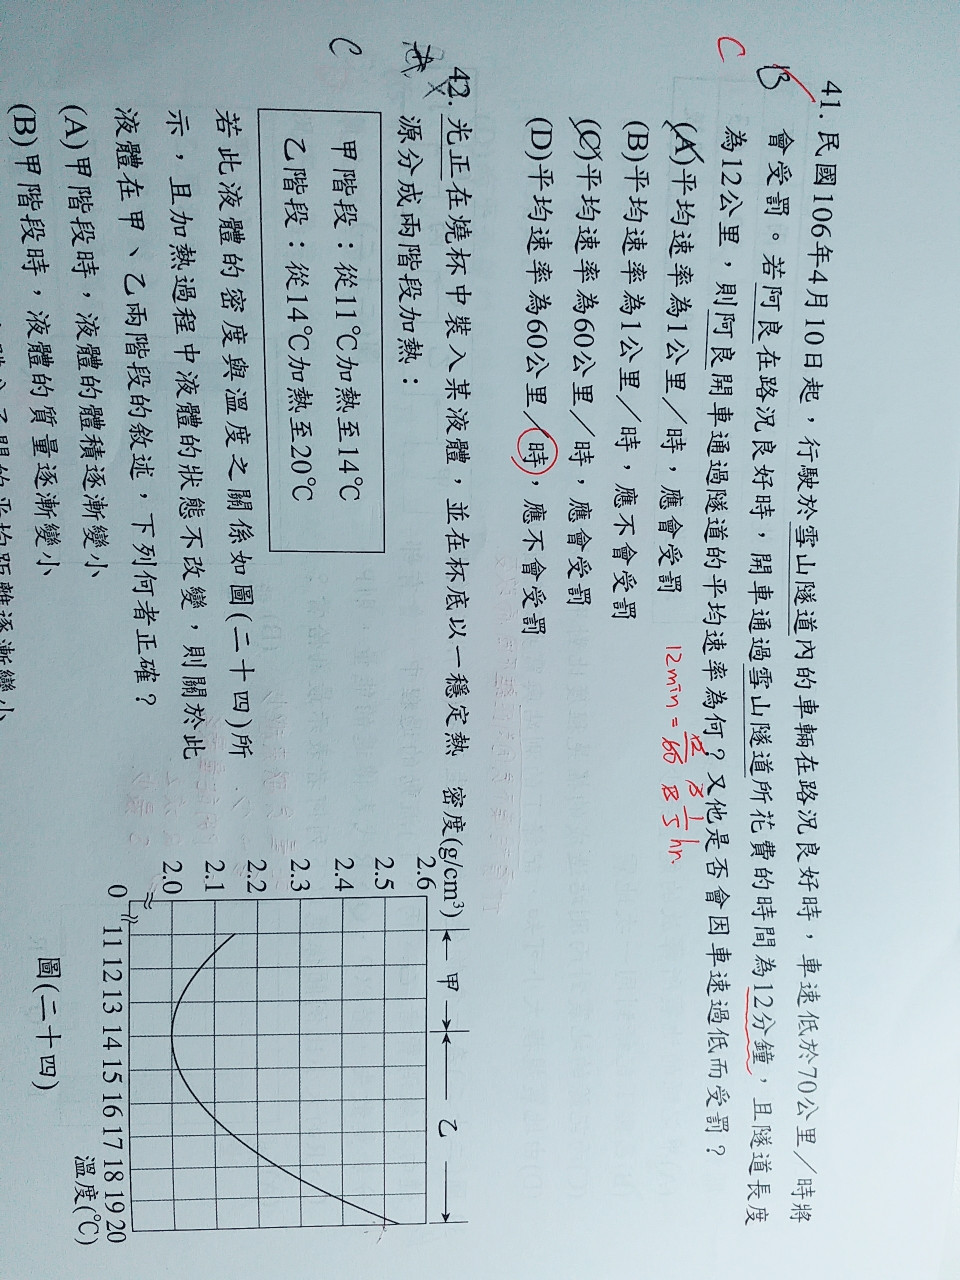 41. 民國106年4月10日起，行駛於雪山隧道內的車輛在路況良好時，車速低於70公里／時將
B
會受罰。若阿良在路況良好時，開車通過雪山隧道所花費的時間為12分鐘，且隧道長度
C
為12公里，則阿良開車通過隧道的平均速率為何？又他是否會因車速過低而受罰？
(A)平均速率為1公里／時，應會受罰
12min = 12/60 為 1/5 hr.
(B)平均速率為1公里／時，應不會受罰
(C)平均速率為60公里／時，應會受罰
(D)平均速率為60公里／時，應不會受罰
42. 光正在燒杯中裝入某液體，並在杯底以一穩定熱
源分成兩階段加熱：
C
甲階段：從11℃加熱至14℃
乙階段：從14℃加熱至20℃
若此液體的密度與溫度之關係如圖(二十四)所
示，且加熱過程中液體的狀態不改變，則關於此
液體在甲、乙兩階段的敘述，下列何者正確？
(A)甲階段時，液體的體積逐漸變小
(B)甲階段時，液體的質量逐漸變小
間的平均距離逐漸變小
密度(g/cm³)
甲
乙
2.6
2.5
2.4
2.3
2.2
2.1
2.0
0
11 12 13 14 15 16 17 18 19 20
溫度(℃)
圖(二十四)